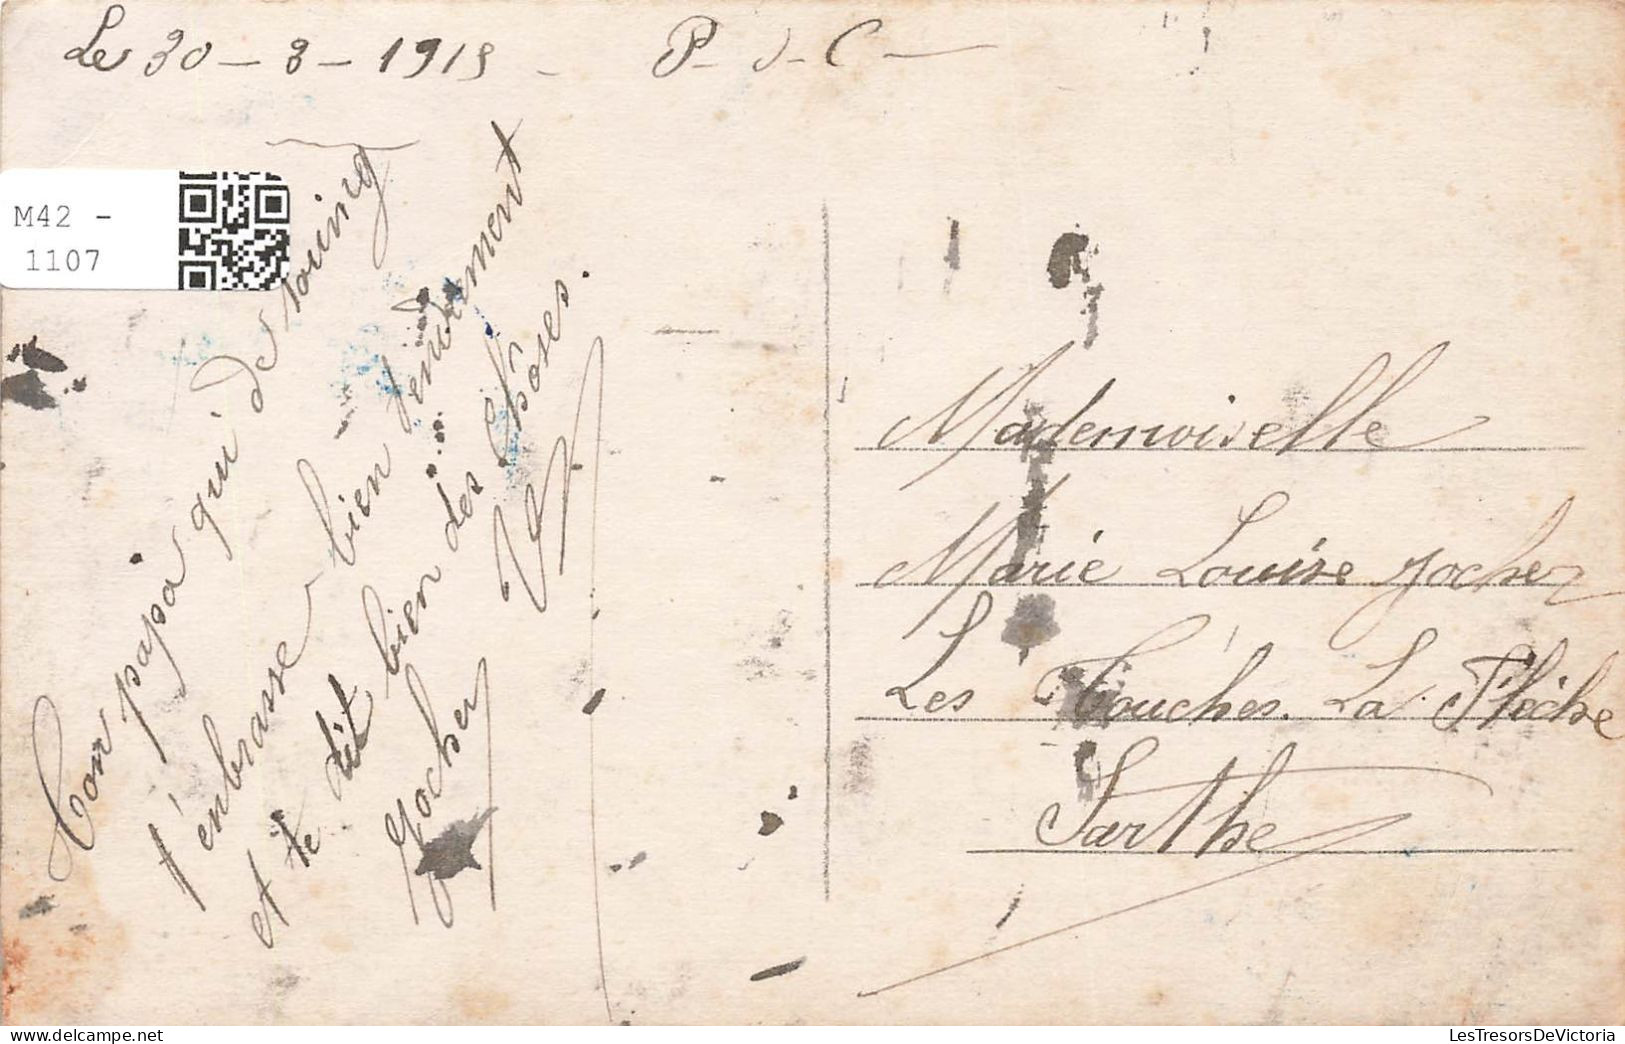 Le 30 - 8 - 1915 - P - d - C -
M42 -
1107
Ton papa qui de loing
t'enbrasse bien tendrement
et te dit bien des chôses.
Gocher
Mademoiselle
Marie Louise Gocher
Les Touches. La Flèche
Sarthe
LesTresorsDeVictoria